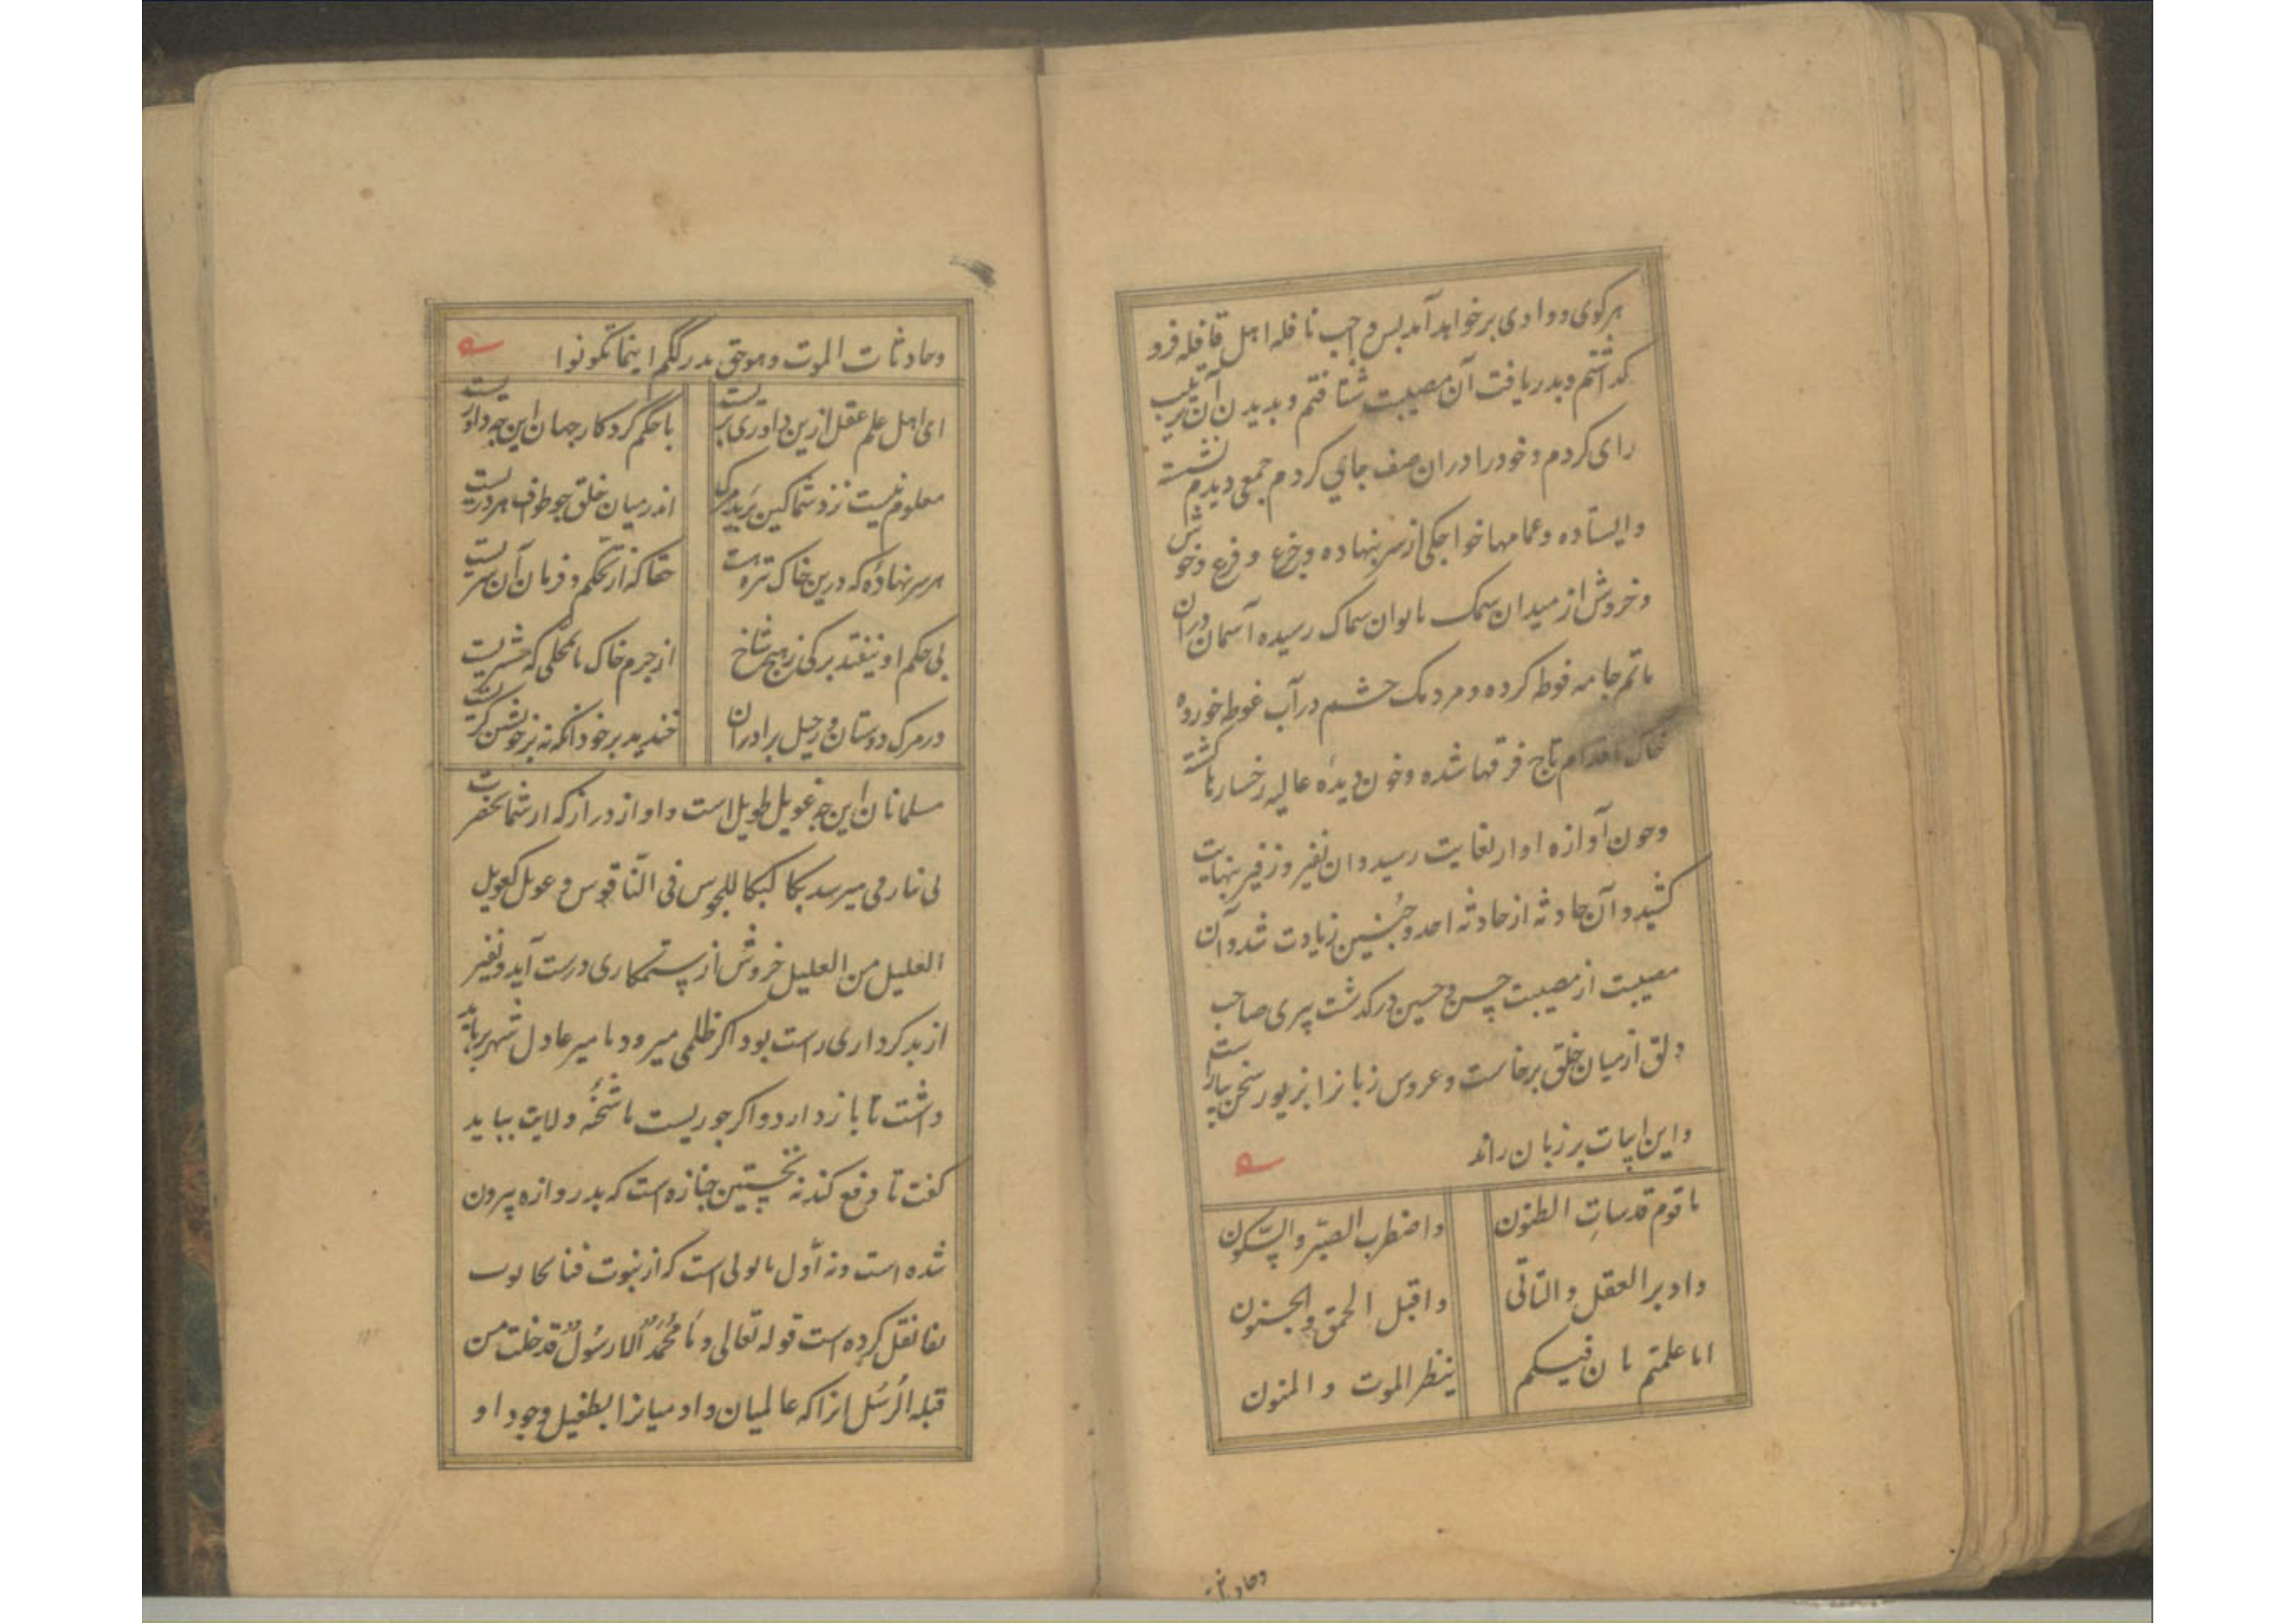 هر کوی و وادی برخواهد آمد بس واجب نافله اهل قافله فرو
کذاشتم و بدریافت آن مصیبت شتافتم و بدیدن آن ترتیب
رای کردم و خود را دران صف جای کردم جمعی دیدم نشسته
و ایستاده و عمامها خواجکی از سر بنهاده و جزع و فزع و خوش
و خروش از میدان سمک بایوان سماک رسیده آسمان دران
ماتم جامه فوطه کرده و مردمک چشم در آب غوطه خورده
خاک اقدام تاج فرقها شده و خون دیده غالیه رخسارها کشته
و چون آوازه اوار بغایت رسید و ان نفیر و زفیر بنهایت
کشید و آن حادثه از حادثه احد و حُنین زیادت شد و آن
مصیبت از مصیبت حسن و حسین درکذشت پیری صاحب
دلق از میان خلق برخاست و عروس زبانرا بزیور سخن بیاراست
و این ابیات بر زبان راند
یا قوم قد ساءت الظنون واضطرب الصبر والسکون
وادبر العقل والتأنی واقبل الحمق والجنون
اما علمتم بان فیکم ینتظر الموت والمنون
وحادثات
وحادثات الموت وهو حق یدرککم اینما تکونوا
ای اهل علم عقل ازین داوری بریست با حکم کردکار جهان این چه داوریست
معلوم نیست نزد شما کین برید مرک اندر میان خلق چو طواف هر دریست
هر سر نهاده که درین خاک تیره هست حقا که از تحکم و فرمان آن سریست
بی حکم او نیفتد برکی ز هیچ شاخ از جرم خاک تا بمحلی که مشتریست
در مرک دوستان و رحیل برادران خندید بر خود انکه نه بر خویشتن کریست
مسلمانان این چه عویل طویل است و اواز دراز که از شما بحضرت
بی نیازی میرسد بکا کبکا للمجوس فی النّاقوس و عویل کعویل
العلیل من الغلیل خروش از ستمکاری درست آید و نفیر
از بدکرداری راست بود اکر ظلمی میرود با میر عادل شهر بباید
داشت تا باز دارد و اکر جوریست با شحنه ولایت بباید
کفت تا دفع کند نه نخستین جنازه است که بدروازه بیرون
شده است و نه اول نابولی است که از بنوت فنا
بقا نقل کرده است قوله تعالی وَما مُحمَّدٌ اِلا رسُولٌ قد خلت من
قبله الرُسُل انرا که عالمیان و ادمیانرا بطفیل وجود او